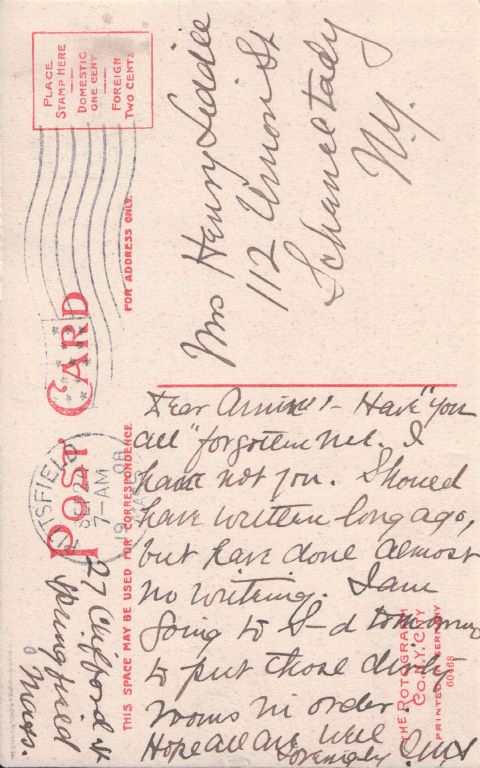 PLACE
STAMP HERE
DOMESTIC
ONE CENT
FOREIGN
TWO CENTS
POST CARD
PITTSFIELD
SEP 24
7-AM
1908
MASS
THIS SPACE MAY BE USED FOR CORRESPONDENCE
FOR ADDRESS ONLY.
Mrs Henry Liddle
112 Union St
Schanectady
N.Y.
27 Clifford St
Springfield
Mass.
Dear Annie:- Have "you
all" forgotten me. I
have not you. Should
have written long ago,
but have done almost
no writing. I am
going to S-d tomorrow
to put those dirty
rooms in order
Hope all are well
Lovingly
THE ROTOGRAPH
CO. N.Y. CITY
PRINTED IN GERMANY
60468